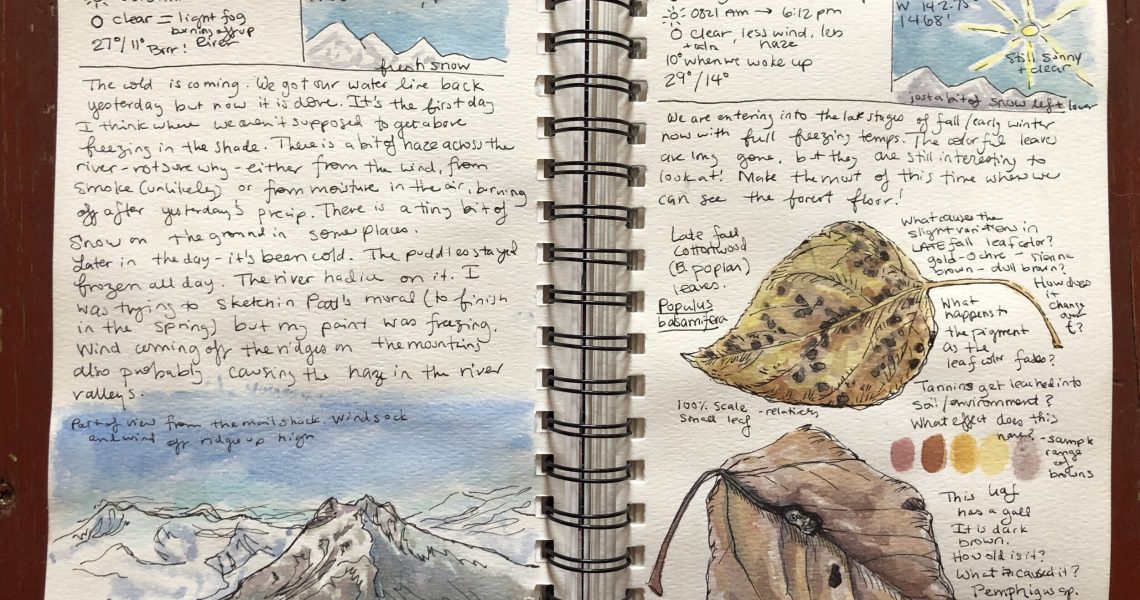 clear = light fog
burning off up
River
27°/11° Brrr!
fresh snow
The cold is coming. We got our water line back
yesterday but now it is done. It's the first day
I think where we aren't supposed to get above
freezing in the shade. There is a bit of haze across the
river - not sure why - either from the wind, from
smoke (unlikely) or from moisture in the air, burning
off after yesterday's precip. There is a tiny bit of
snow on the ground in some places.
Later in the day - it's been cold. The puddles stayed
frozen all day. The river had ice on it. I
was trying to sketch in Patt's mural (to finish
in the spring) but my paint was freezing.
Wind coming off the ridges on the mountains
also probably causing the haze in the river
valleys.
Part of view from the mail shack. Windsock
and wind off ridges up high
0821 am → 6:12 pm
clear, less wind, less
+ calm haze
10° when we woke up
29°/14°
W 142.75
1468'
still sunny
+ clear
just a bit of snow left over
We are entering into the late stages of fall/early winter
now with full freezing temps. The colorful leaves
are long gone, but they are still interesting to
look at! Make the most of this time when we
can see the forest floor!
Late fall
Cottonwood
(B. poplar)
leaves.
Populus
balsamifera
100% scale - relatively
small leaf
What causes the
slight variation in
LATE fall leaf color?
gold - ochre - sienna
brown - dull brown?
How does
it
change
over
t?
What
happens to
the pigment
as the
leaf color fades?
Tannins get leached into
soil/environment?
What effect does this
have?
- sample
range
of
browns
This leaf
has a gall
It is dark
brown.
How old is it?
What caused it?
Pemphigus sp.